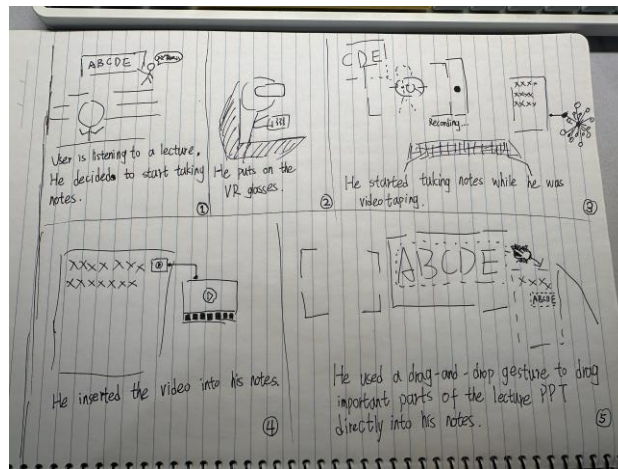 ABCDE
User is listening to a lecture.
He decided to start taking
notes.
①
He puts on the
VR glasses.
②
CDE
Recording...
XXXX
XXXX
XXXX
He started taking notes while he was
videotaping.
③
XXXX XXX
XXXXXXX
He inserted the video into his notes.
④
ABCDE
XXXX
ABCDE
He used a drag-and-drop gesture to drag
important parts of the lecture PPT
directly into his notes.
⑤